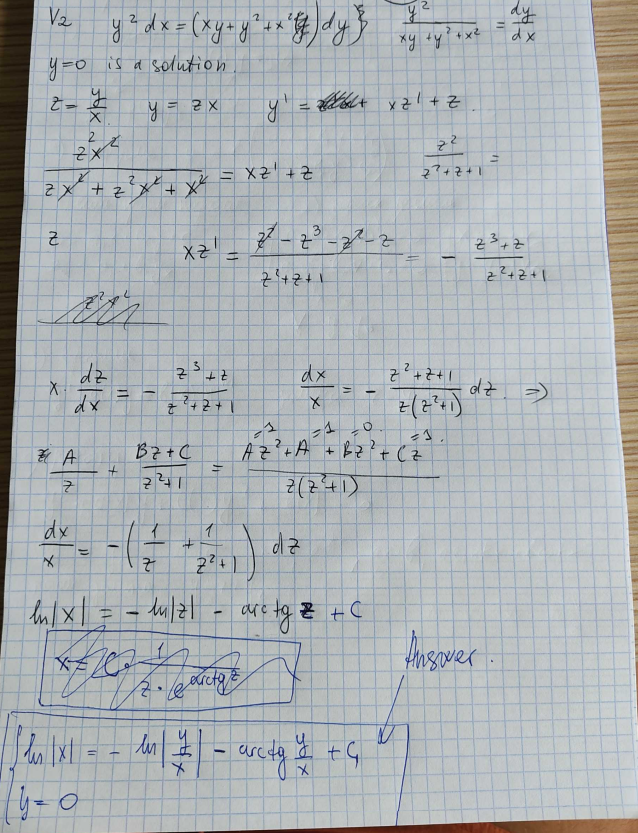 V2 y² dx = (xy + y² + x²) dy } y²/(xy + y² + x²) = dy/dx
y=0 is a solution.
z = y/x y = zx y' = xz' + z.
z²x²/(zx² + z²x² + x²) = xz' + z z²/(z²+z+1) =
z xz' = (z² - z³ - z² - z)/(z²+z+1) = - (z³+z)/(z²+z+1)
z²x²
x · dz/dx = - (z³+z)/(z²+z+1) dx/x = - (z²+z+1)/(z(z²+1)) dz ⇒
=1 =1 =0 =1
A/z + (Bz+C)/(z²+1) = (Az² + A + Bz² + Cz)/(z(z²+1))
dx/x = - (1/z + 1/(z²+1)) dz
ln|x| = - ln|z| - arctg z + C
x = C · 1/(z · e^(arctg z))
Answer.
{ ln|x| = - ln|y/x| - arctg y/x + C,
y = 0